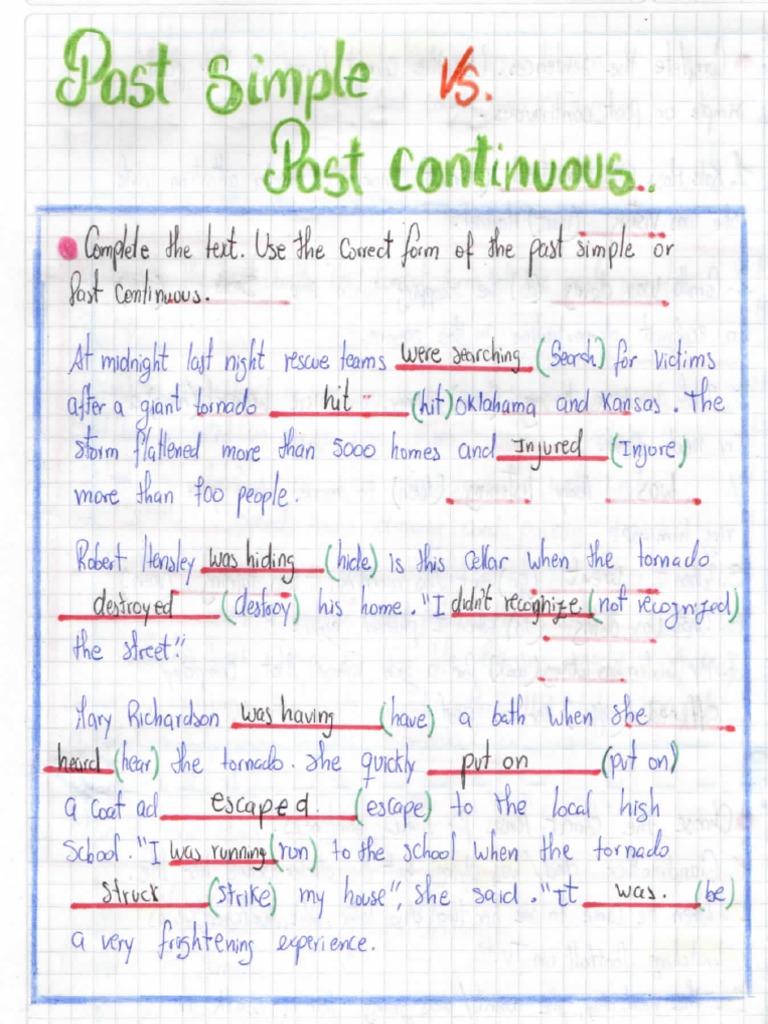 Past Simple Vs.
Past Continuous..
Complete the text. Use the correct form of the past simple or
Past Continuous.
At midnight last night rescue teams were searching (Search) for victims
after a giant tornado hit (hit) Oklahama and Kansas. The
storm flattened more than 5000 homes and Injured (Injore)
more than 700 people.
Robert Hensley was hiding (hide) is this Cellar when the tornado
destroyed (destroy) his home. "I didn't recognize (not recognized)
the street."
Mary Richardson was having (have) a bath when she
heard (hear) the tornado. She quickly put on (put on)
a coat ad escaped. (escape) to the local high
School. "I was running (run) to the school when the tornado
Struck (strike) my house", She said. "It was. (be)
a very frightening experience.